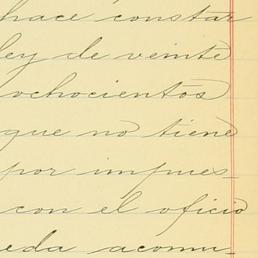 hace constar
ley de veinte
ochocientos
que no tiene
por impues_
con el oficio
eda acomu_